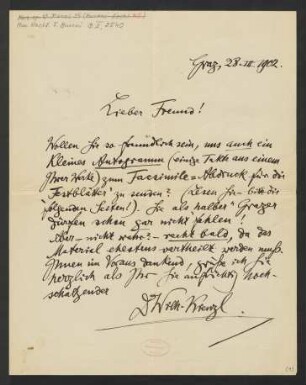 Graz, 28. III. 1902.
Lieber Freund!
Wollen Sie so freundlich sein, uns auch ein
kleines Autogramm (einige Takte aus einem
Ihrer Werke) zum Facsimile-Abdruck für die
"Festblätter" zu senden? (Lesen Sie bitte die
folgenden Seiten!). Sie als halber Grazer
dürfen schon gar nicht fehlen!
Aber – nicht wahr? – recht bald, da das
Material ehestens vertheilt werden muß.
Ihnen im Voraus dankend, grüße ich Sie
herzlich als Ihr Sie aufrichtig hoch-
schätzender
Dr Wilh. Kienzl.